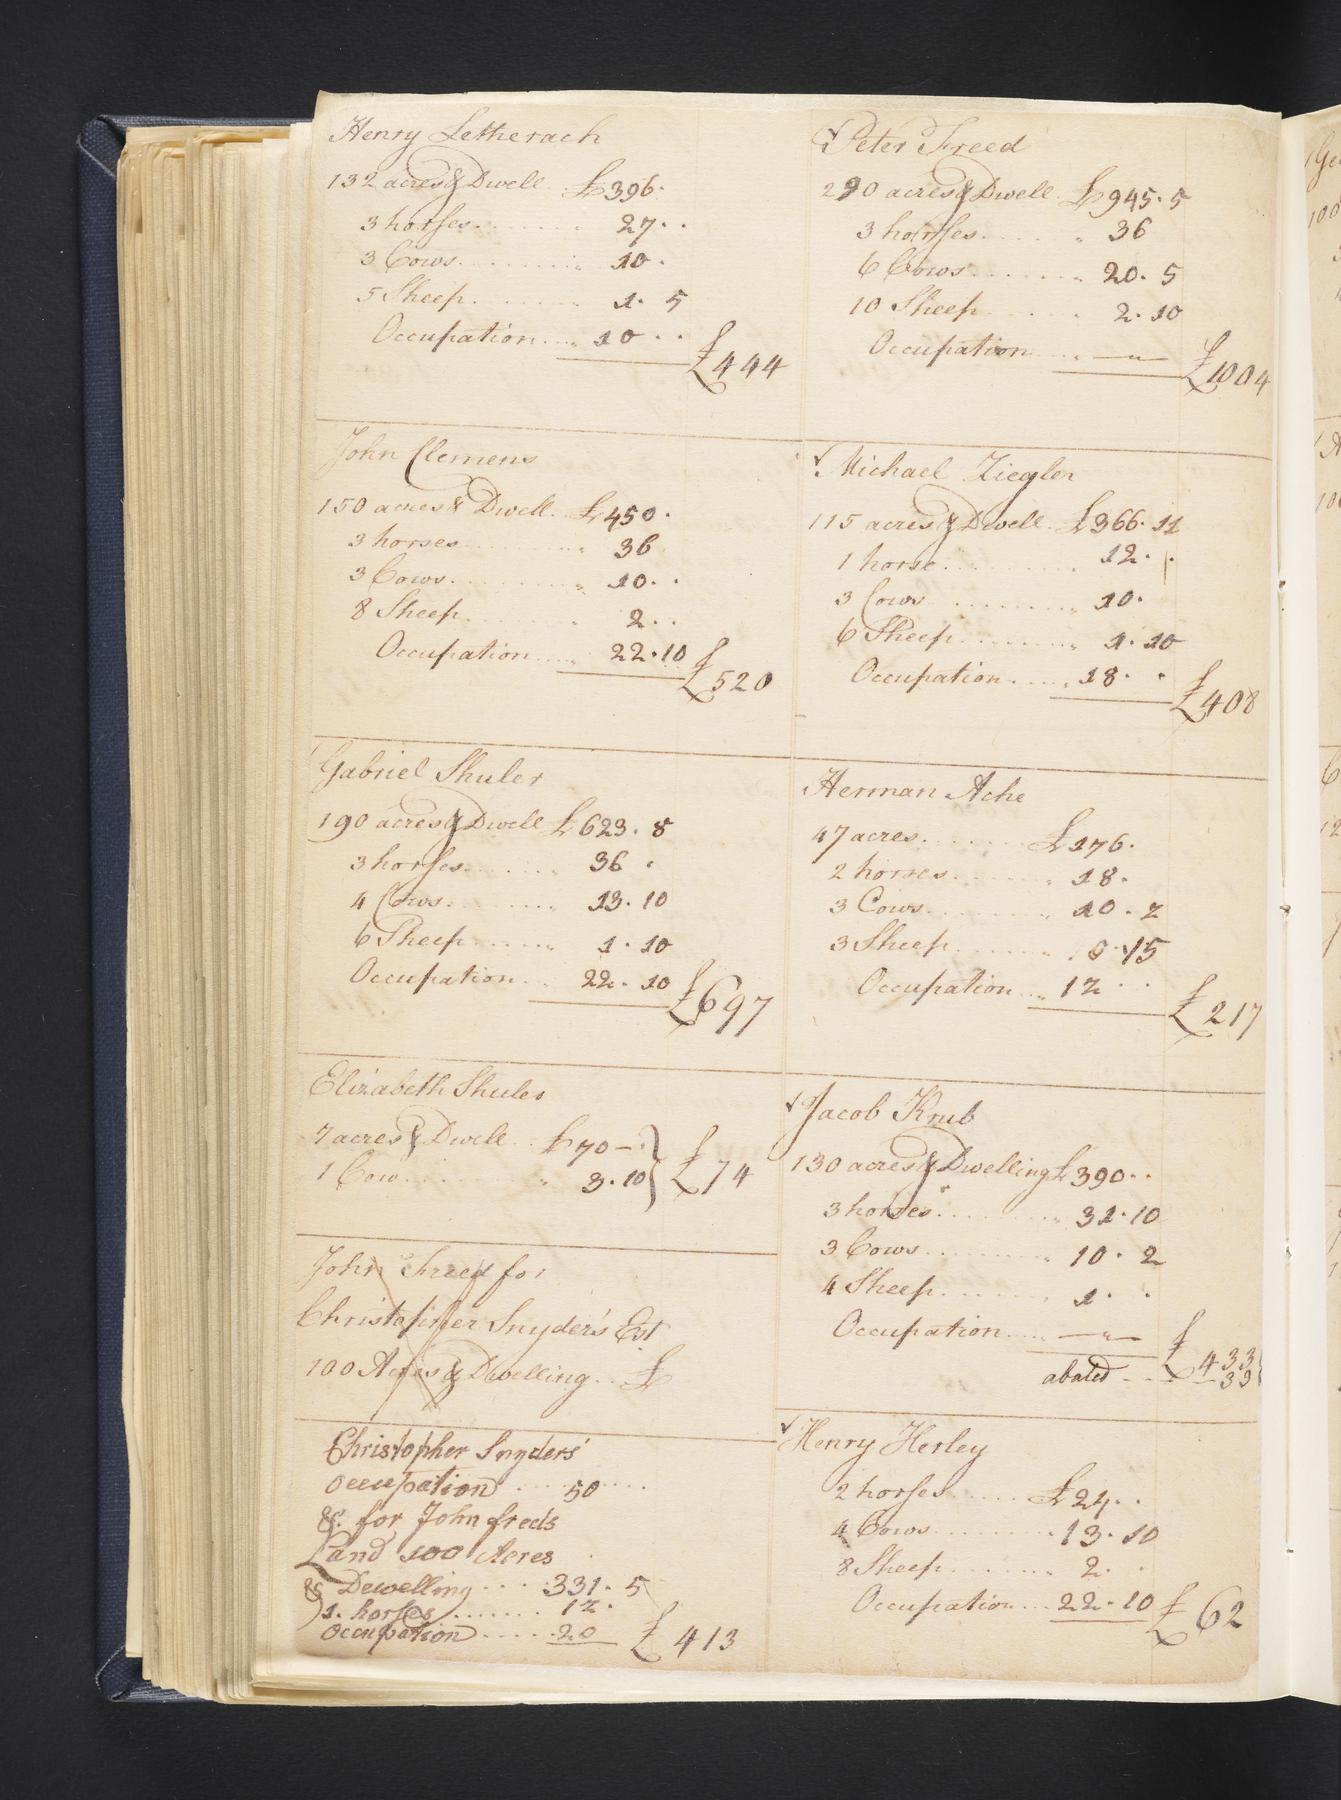 Henry Letherach
132 acres & Dwell. £396.
3 horses ........ 27..
3 Cows ........ 10.
5 Sheep ........ 1. 5
Occupation .... 10 ..
£444
John Clemens
150 acres & Dwell. £450.
3 horses ........ 36
3 Cows ........ 10..
8 Sheep ........ 2..
Occupation .... 22.10
£520
Gabriel Shuler
190 acres & Dwell £623. 8
3 horses ........ 36 .
4 Cows ........ 13.10
6 Sheep ........ 1.10
Occupation ... 22.10
£697
Elizabeth Shuler
7 acres & Dwell .. £70 -
1 Cow ........ 3.10
£74
John Freed for
Christopher Snyder's Est
100 Acres & Dwelling .. £
Christopher Snyders'
Occupation ... 50 ...
&. for John freds
Land 100 Acres
& Dewelling ... 331. 5
1. horses ....... 12.
Occupation ..... 20
£413
Peter Freed
290 acres & Dwell £945.5
3 horses ........ 36
6 Cows ........ 20. 5
10 Sheep ........ 2.10
Occupation .... —"—
£1004
Michael Ziegler
115 acres & Dwell £366.11
1 horse ........ 12..
3 Cows ........ 10.
6 Sheep ........ 1.10
Occupation .... 18. .
£408
Herman Ache
47 acres ........ £176.
2 horses ........ 18.
3 Cows ........ 10.2
3 Sheep ........ 0.15
Occupation ... 12 ..
£217
Jacob Krub
130 acres & Dwelling £390..
3 horses ........ 31.10
3 Cows ........ 10. 2
4 Sheep ........ 1. .
Occupation .... —"—
£433
abated - - - 39
Henry Herley
2 horses ........ £24..
4 Cows ........ 13.10
8 Sheep ........ 2. .
Occupation ... 22.10
£62